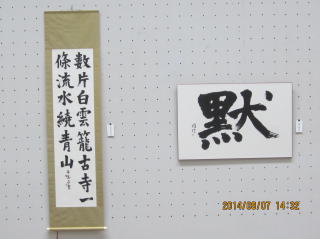 數片白雲籠古寺一
條流水繞青山
默
2014/09/07 14:32